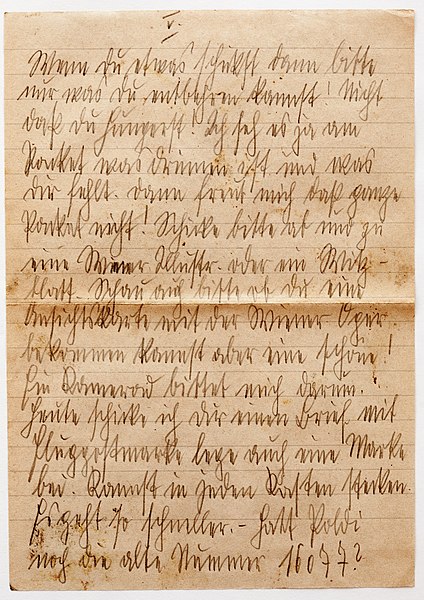 V.
Wenn du etwas schickst dann bitte
nur was du entbehren kannst! Nicht
daß du hungerst! Ich seh es ja am
Packet was drinnen ist und was
dir fehlt. Dann freut mich daß ganze
Packet nicht! Schicke bitte ab und zu
eine Wiener Illustr. oder ein Witz-
blatt. Schau auch bitte ob du eine
Ansichtskarte mit der Wiener Oper
bekommen kannst aber eine schöne!
Ein Kamerad bittet mich darum.
Heute schicke ich dir einen Brief mit
Flugpostmarke lege auch eine Marke
bei. Kannst in jeden Kasten stecken.
Es geht so schneller. – Hatt Poldi
noch die alte Nummer 16077?